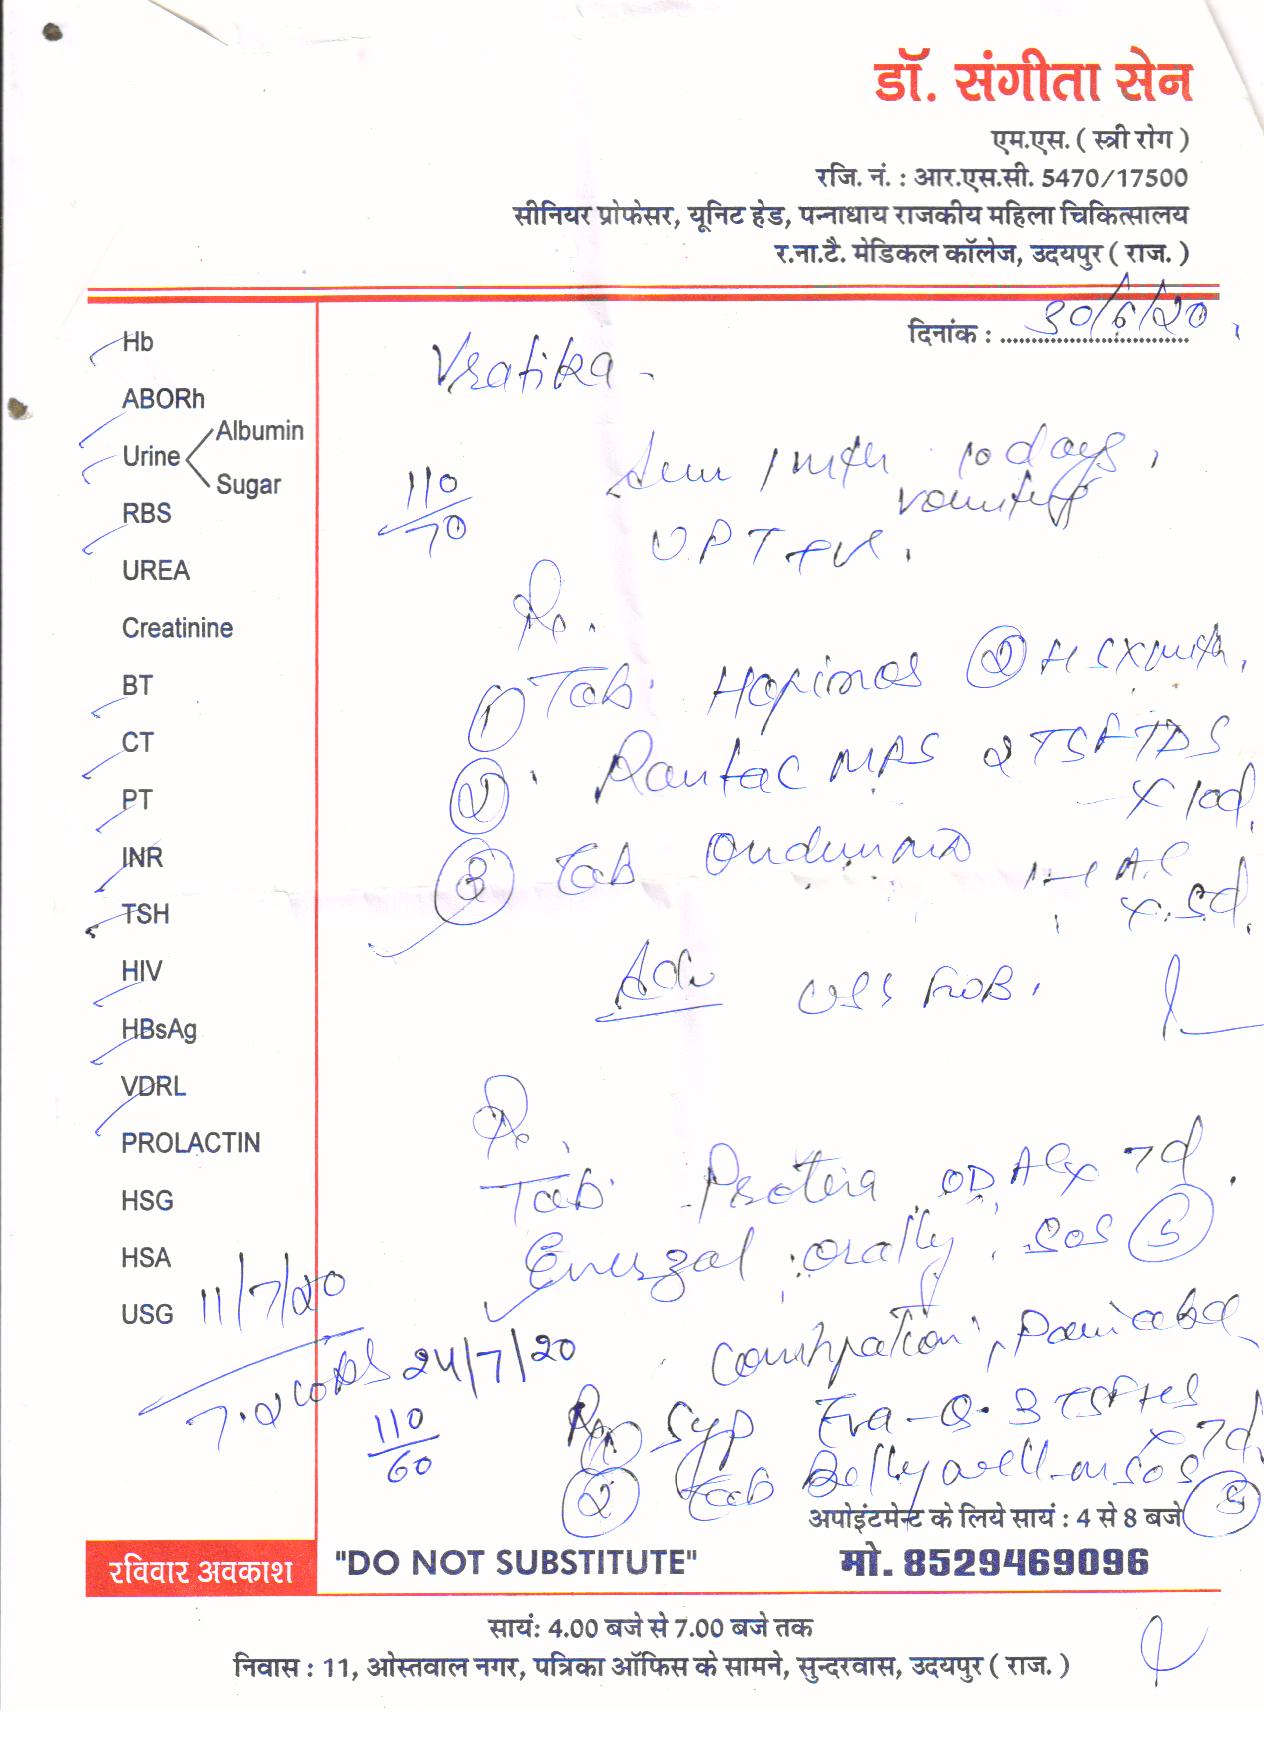 डॉ. संगीता सेन
एम.एस. ( स्त्री रोग )
रजि. नं. : आर.एस.सी. 5470/17500
सीनियर प्रोफेसर, यूनिट हेड, पन्नाधाय राजकीय महिला चिकित्सालय
र.ना.टै. मेडिकल कॉलेज, उदयपुर ( राज. )
दिनांक : 30/6/20
Hb
ABORh
Urine Albumin
Sugar
RBS
UREA
Creatinine
BT
CT
PT
INR
TSH
HIV
HBsAg
VDRL
PROLACTIN
HSG
HSA
USG 11/7/20
Vratika
110/70
10 days,
vomiting
UPT +ve.
Rx.
① Tab. ② HS x
② Rantac MPS 2 TSF TDS
x 10d.
③ Tab 1-1 AC
x 5d.
Adv
Rx.
Tab. OD AC x 7d.
orally SOS ⑤
7.2 24/7/20
110/60
Rx Syp Eva-Q. 3 TSF HS
x 7d.
② Tab Bellywell-M SOS ⑤
अपोइंटमेन्ट के लिये सायं : 4 से 8 बजे
रविवार अवकाश
"DO NOT SUBSTITUTE"
मो. 8529469096
सायं: 4.00 बजे से 7.00 बजे तक
निवास : 11, ओस्तवाल नगर, पत्रिका ऑफिस के सामने, सुन्दरवास, उदयपुर ( राज. )